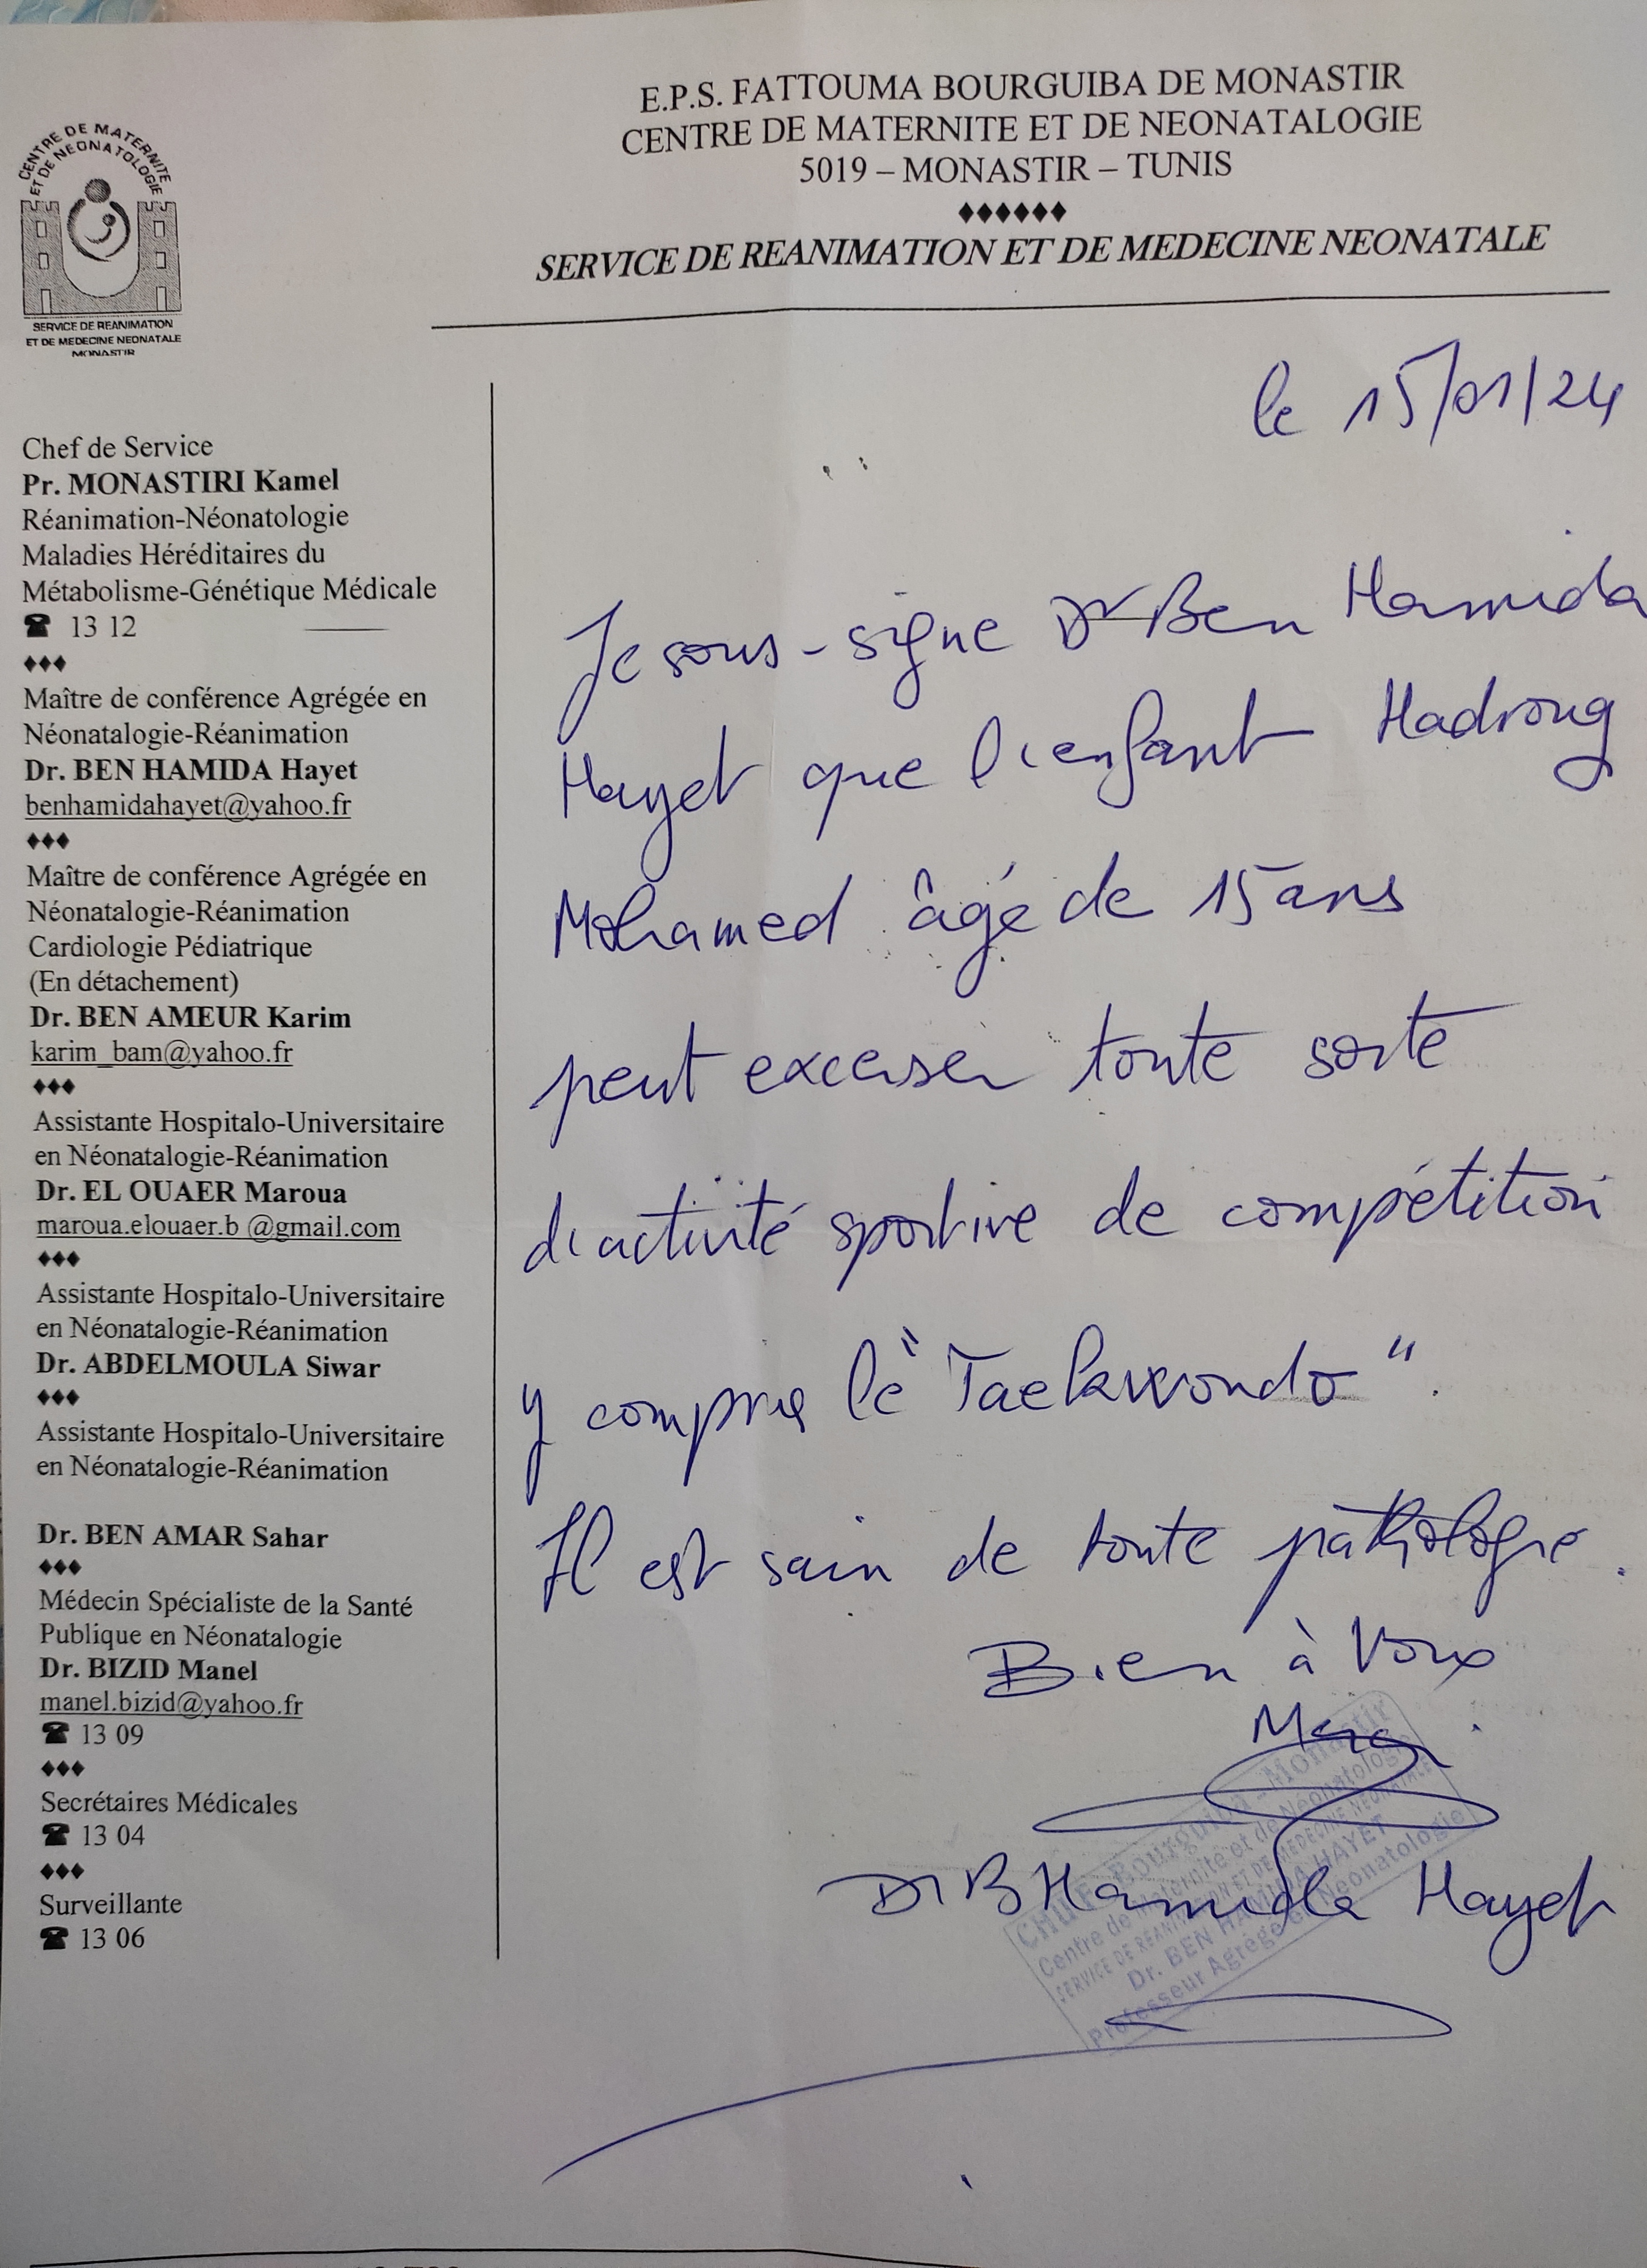 CENTRE DE MATERNITE
ET DE NEONATOLOGIE
SERVICE DE REANIMATION
ET DE MEDECINE NEONATALE
MONASTIR
E.P.S. FATTOUMA BOURGUIBA DE MONASTIR
CENTRE DE MATERNITE ET DE NEONATALOGIE
5019 – MONASTIR – TUNIS
♦♦♦♦♦♦
SERVICE DE REANIMATION ET DE MEDECINE NEONATALE
Chef de Service
Pr. MONASTIRI Kamel
Réanimation-Néonatologie
Maladies Héréditaires du
Métabolisme-Génétique Médicale
☎ 13 12
♦♦♦
Maître de conférence Agrégée en
Néonatalogie-Réanimation
Dr. BEN HAMIDA Hayet
benhamidahayet@yahoo.fr
♦♦♦
Maître de conférence Agrégée en
Néonatalogie-Réanimation
Cardiologie Pédiatrique
(En détachement)
Dr. BEN AMEUR Karim
karim_bam@yahoo.fr
♦♦♦
Assistante Hospitalo-Universitaire
en Néonatalogie-Réanimation
Dr. EL OUAER Maroua
maroua.elouaer.b @gmail.com
♦♦♦
Assistante Hospitalo-Universitaire
en Néonatalogie-Réanimation
Dr. ABDELMOULA Siwar
♦♦♦
Assistante Hospitalo-Universitaire
en Néonatalogie-Réanimation
Dr. BEN AMAR Sahar
♦♦♦
Médecin Spécialiste de la Santé
Publique en Néonatalogie
Dr. BIZID Manel
manel.bizid@yahoo.fr
☎ 13 09
♦♦♦
Secrétaires Médicales
☎ 13 04
♦♦♦
Surveillante
☎ 13 06
le 15/01/24
Je sous-signe Dr Ben Hamida
Hayet que l'enfant Hadroug
Mohamed âgé de 15 ans
peut excerser toute sorte
d'activité sportive de compétition
y compris le "Taekwondo".
Il est sain de toute pathologie.
Bien à Vous
Merci
Dr B Hamida Hayet
CHU F. Bourguiba - Monastir
Centre de Maternité et de Néonatologie
SERVICE DE REANIMATION ET DE MEDECINE NEONATALE
Dr. BEN HAMIDA HAYET
Professeur Agrégé en Néonatologie